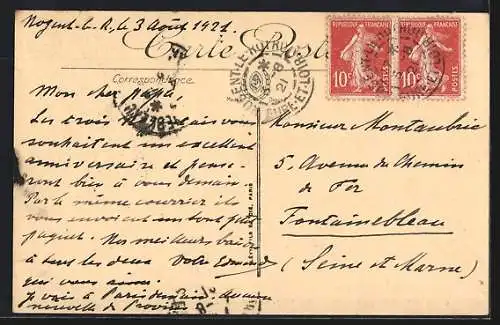 Nogent-le-R, le 3 Août 1921.
Carte Postale
Correspondance
Mon cher papa,
Les trois vous
souhaitent un excellent
anniversaire et pense-
ront bien à vous demain
Par le même courrier ils
vous envoient un tout petit
paquet. Nos meilleurs baisers
à tous les deux Votre Edmond
qui vous aime.
Je vais à Paris demain. Aucune
nouvelle de
Monsieur Montaubric
5, Avenue du Chemin
de Fer
Fontainebleau
(Seine et Marne)
NOGENT-LE-ROTROU
EURE-ET-L
8
21
REPUBLIQUE FRANÇAISE
10c
POSTES
REPUBLIQUE FRANÇAISE
10c
POSTES
PARIS